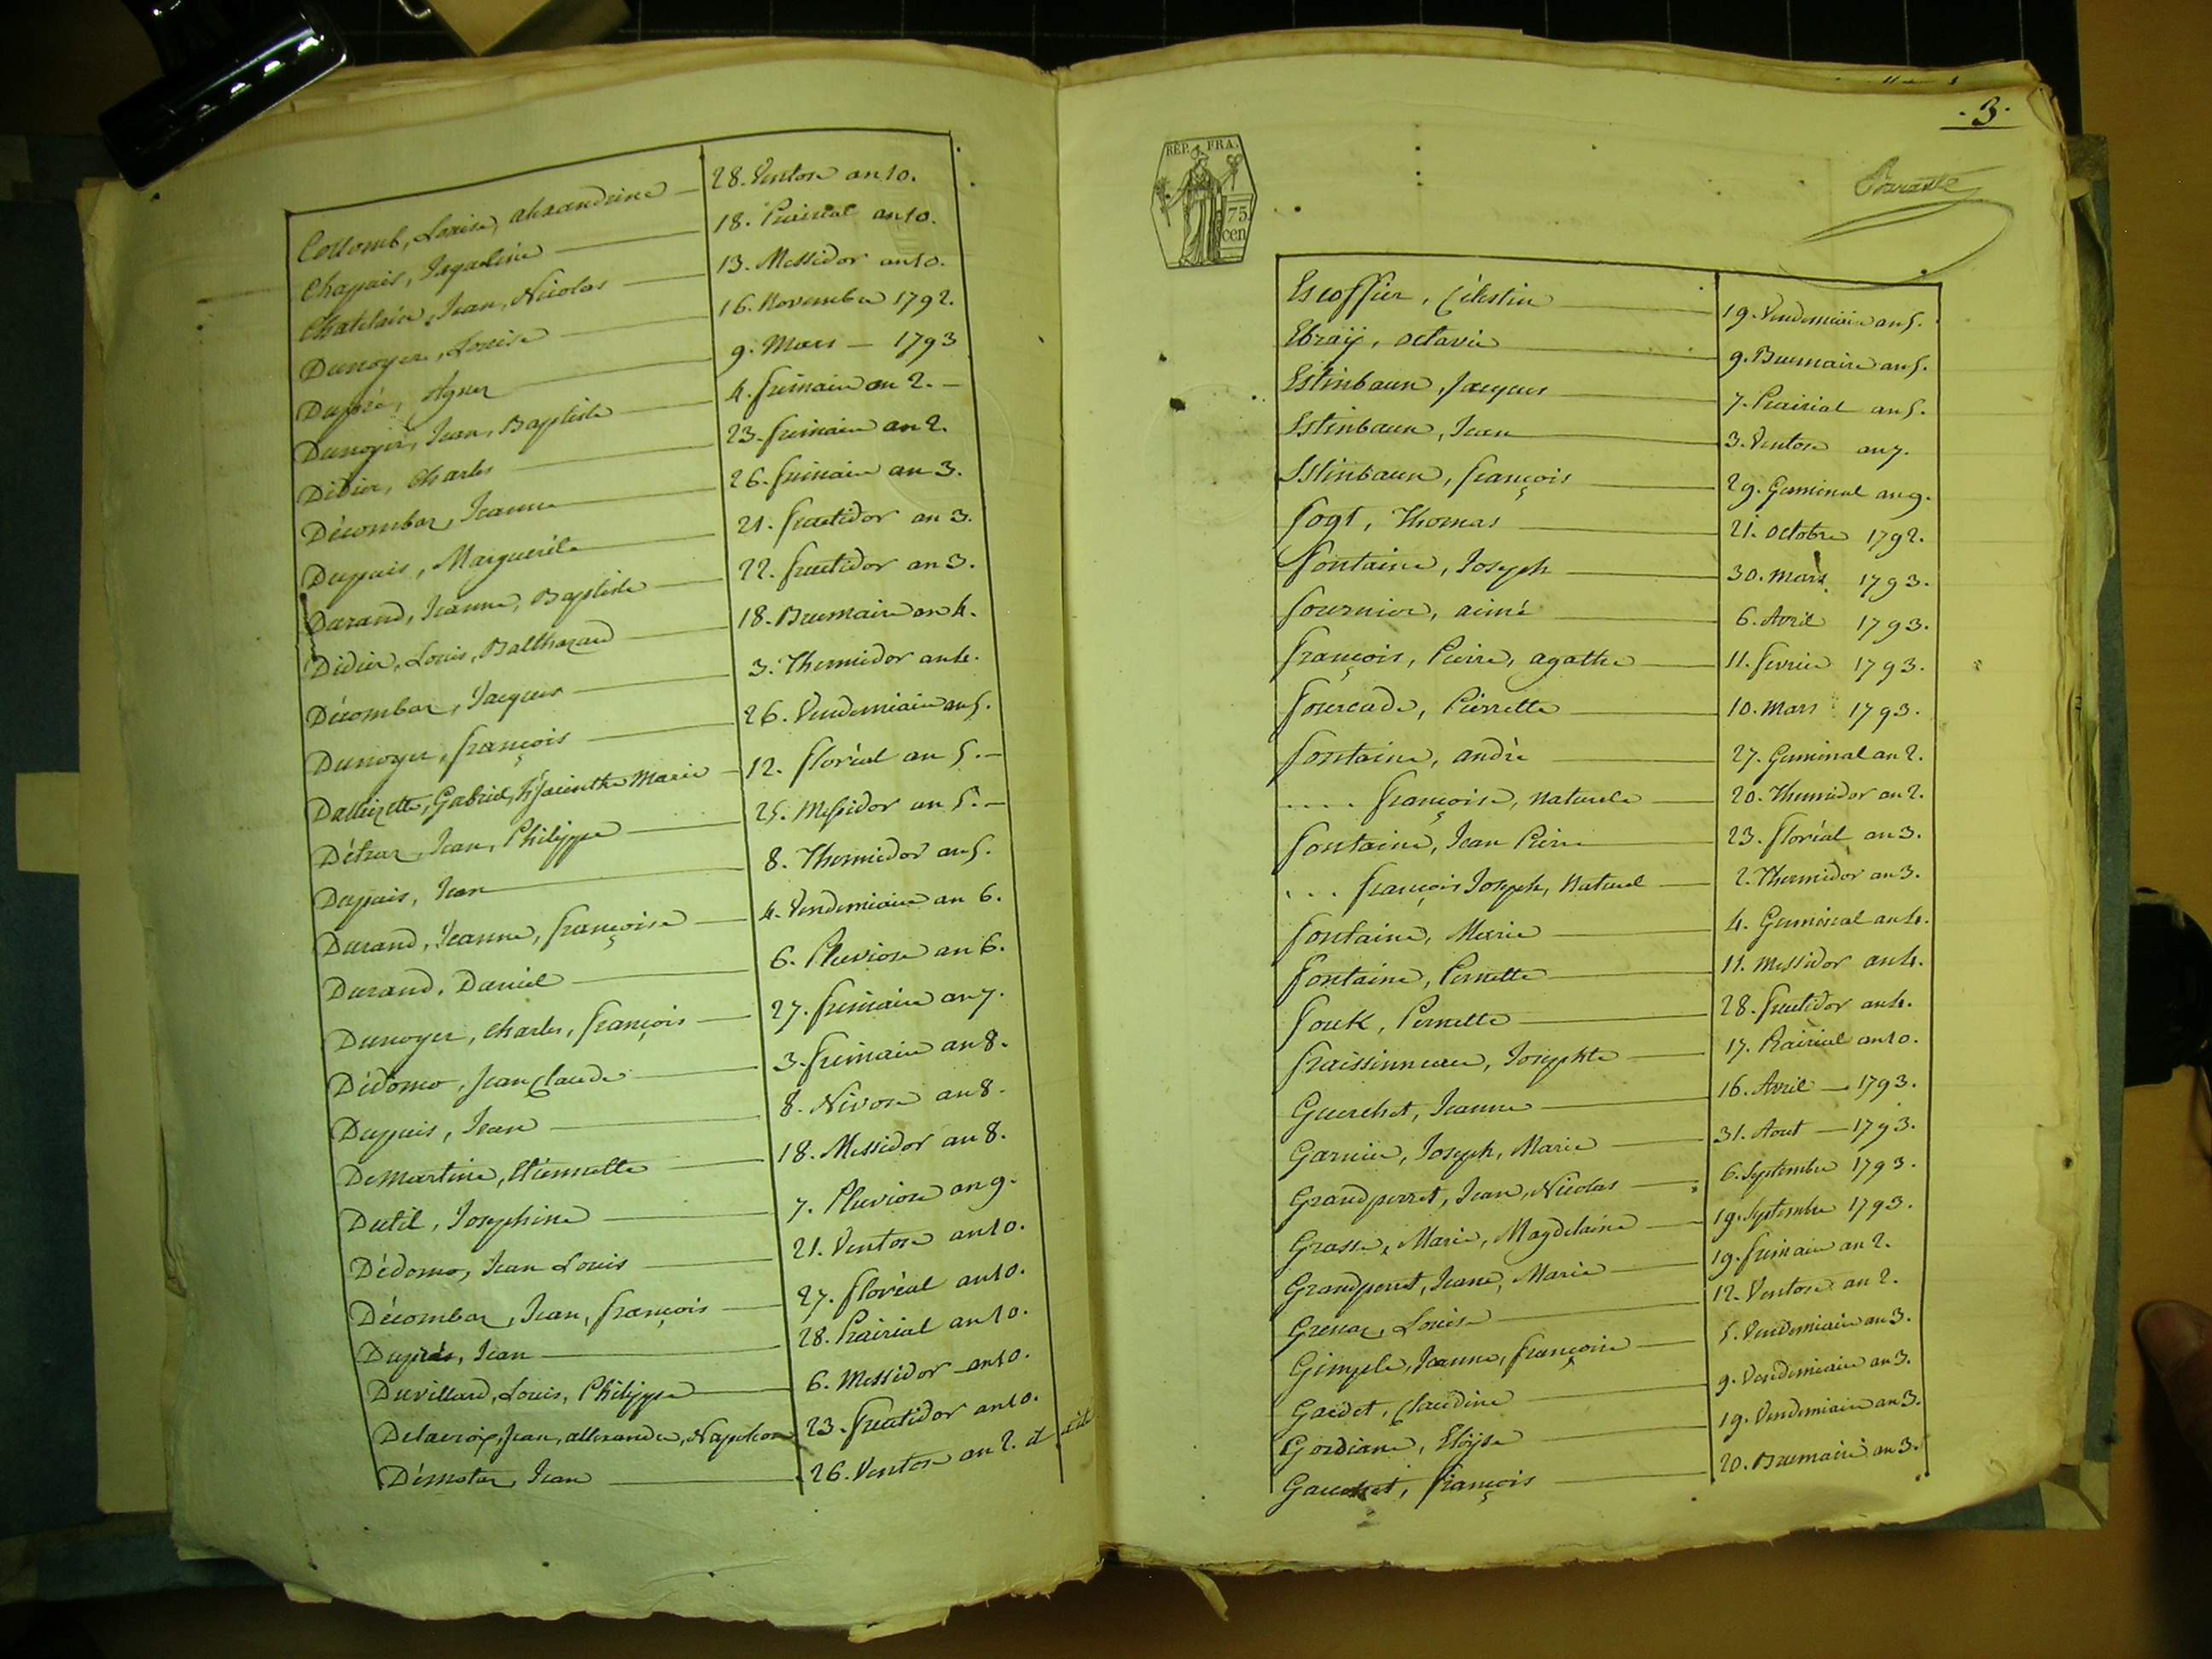 Collomb, Louise, alexandrine — 28. Ventose an 10.
Chapuis, Jaqueline — 18. Prairial an 10.
Chatelain, Jean, Nicolas — 13. Messidor an 10.
Dunoyer, Louise — 16. Novembre 1792.
Dupré, Agner — 9. Mars — 1793
Dunoyer, Jean, Baptiste — 4. frimaire an 2. —
Didier, Charles — 23. frimaire an 2.
Décombaz, Jeanne — 26. frimaire an 3.
Dupuis, Marguerite — 21. fructidor an 3.
Durand, Jeanne, Baptiste — 22. fructidor an 3.
Didier, Louis, Balthazard — 18. Brumaire an 4.
Décombaz, Jacques — 3. Thermidor an 4.
Dunoyer, françois — 26. Vendemiaire an 5.
Gabriel, hÿacinthe Marie — 12. floréal an 5. —
Détraz, Jean, Philippe — 25. Messidor an 5. —
Dupuis, Jean — 8. Thermidor an 5.
Durand, Jeanne, françoise — 4. Vendemiaire an 6.
Durand, Daniel — 6. Pluviose an 6.
Dunoyer, Charles, françois — 27. frimaire an 7.
Dédomo, Jean Claude — 3. frimaire an 8.
Dupuis, Jean — 8. Nivose an 8.
DeMartine, Etiennette — 18. Messidor an 8.
Dutil, Josephine — 7. Pluviose an 9.
Dédomo, Jean Louis — 21. Ventose an 10.
Décombaz, Jean, françois — 27. floréal an 10.
Dupuis, Jean — 28. Prairial an 10.
Duvillard, Louis, Philippe — 6. Messidor an 10.
Delacroix, Jean, allexandre, Napoleon 23. fructidor an 10.
Démotaz, Jean — 26. Ventose an 2. et
. 3 .
REP. FRA.
75.
cen
Escoffier, Célestin — 19. Vendemiaire an 5.
Ebraÿ, octavie — 9. Brumaire an 5.
Estinbaum, Jacques — 7. Prairial an 5.
Estinbaum, Jean — 3. Ventose an 7.
Estinbaum, françois — 29. Germinal an 9.
fogt, Thomas — 21. octobre 1792.
fontaine, Joseph — 30. mars 1793.
fournier, aimé — 6. Avril 1793.
françois, Pierre, agathe — 11. fevrier 1793.
fourcade, Pierrette — 10. Mars 1793.
fontaine, andré — 27. Germinal an 2.
.... françoise, naturele — 20. Thermidor an 2.
fontaine, Jean Pierre — 23. floréal an 3.
... françois Joseph, naturel — 2. Thermidor an 3.
fontaine, Marie — 4. Germinal an 4.
fontaine, Pernette — 11. Messidor an 4.
fouk, Pernette — 28. fructidor an 4.
fraissinneau, Josephte — 17. Prairial an 10.
Guerchet, Jeanne — 16. Avril — 1793.
Garnier, Joseph, Marie — 31. Aout — 1793.
Grandperret, Jean, Nicolas — 6. Septembre 1793.
Grasse, Marie, Magdelaine — 19. Septembre 1793.
Grandperret, Jeane, Marie — 19. frimaire an 2.
Louise — 12. Ventose an 2.
Gimple, Jeanne, françoise — 5. Vendemiaire an 3.
Gaudet, Claudine — 9. Vendemiaire an 3.
Gordiane, Eloÿse — 19. Vendemiaire an 3.
Gauchet, françois — 20. Brumaire an 3.